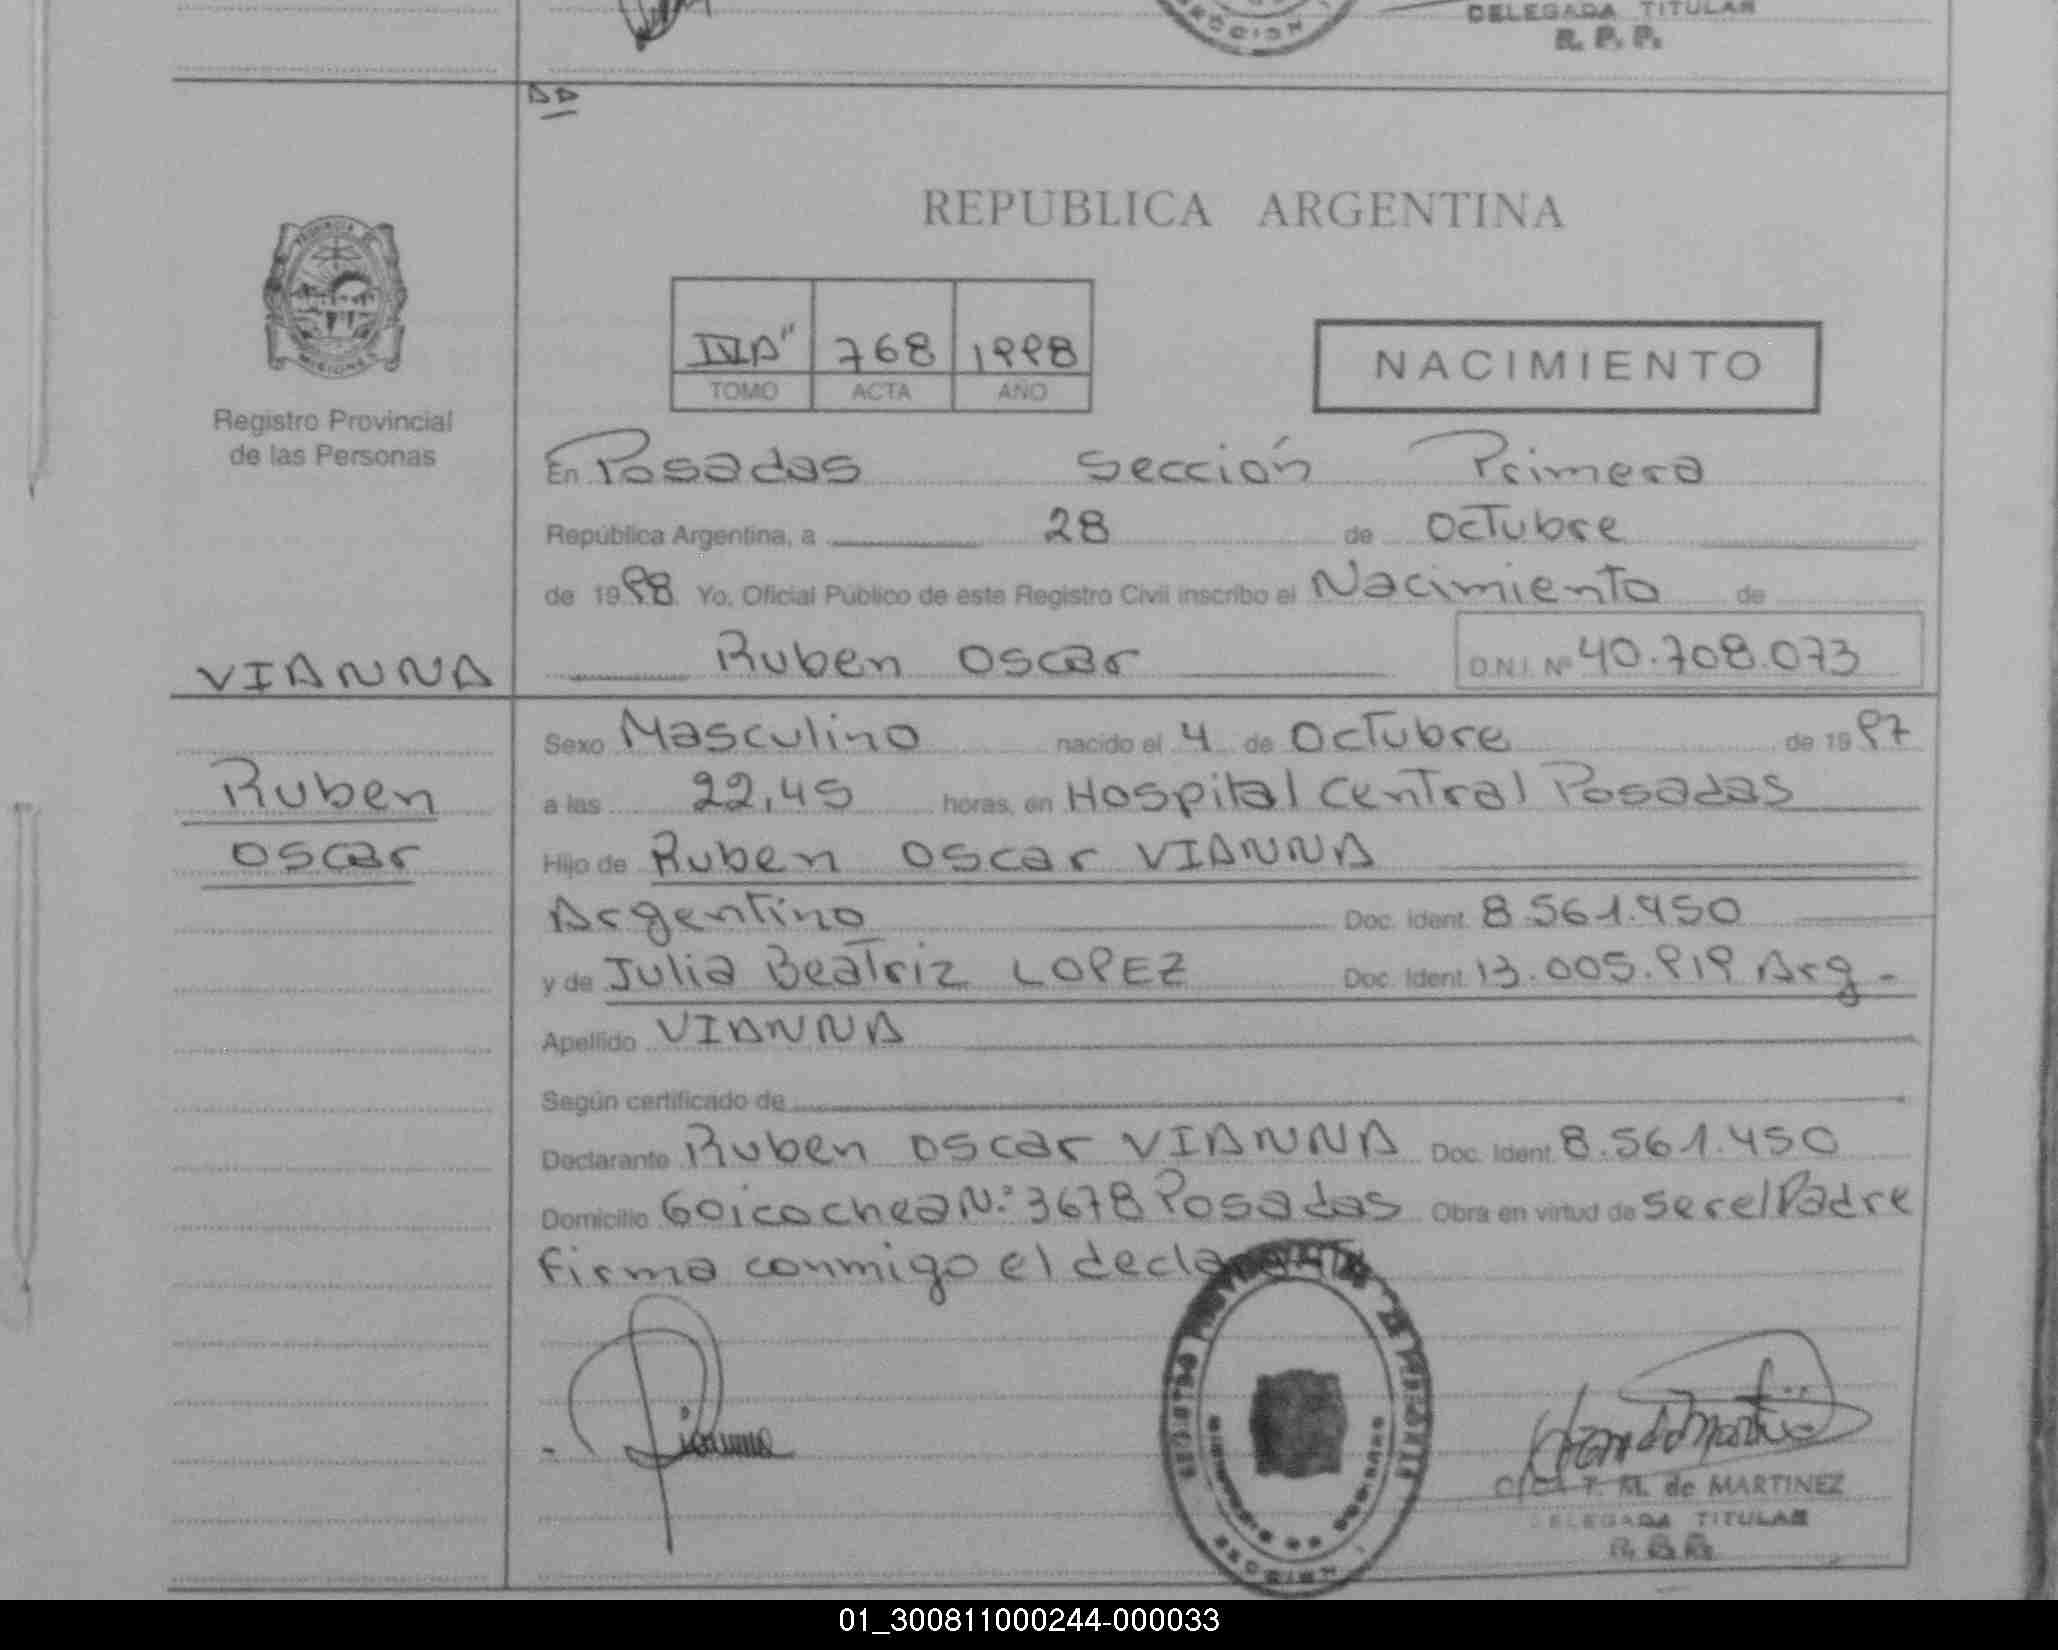 DELEGADA TITULAR
R. P. P.
REPUBLICA ARGENTINA
768 1998
TOMO ACTA AÑO
NACIMIENTO
Registro Provincial
de las Personas
En Posadas Sección Primera
República Argentina, a 28 de Octubre
de 1998. Yo, Oficial Público de este Registro Civil inscribo el Nacimiento de
VIANNA
Ruben Oscar D.N.I. Nº 40.708.073
Sexo Masculino nacido el 4 de Octubre de 1997
Ruben
a las 22,45 horas, en Hospital Central Posadas
Oscar
Hijo de Ruben Oscar VIANNA
Argentino Doc. Ident. 8.561.450
y de Julia Beatriz LOPEZ Doc. Ident. 13.005.919 Arg -
Apellido VIANNA
Según certificado de
Declarante Ruben Oscar VIANNA Doc. Ident. 8.561.450
Domicilio Goicochea N:º 3678 Posadas Obra en virtud de ser el Padre
firma conmigo el
T. M. de MARTINEZ
DELEGADA TITULAR
01_300811000244-000033